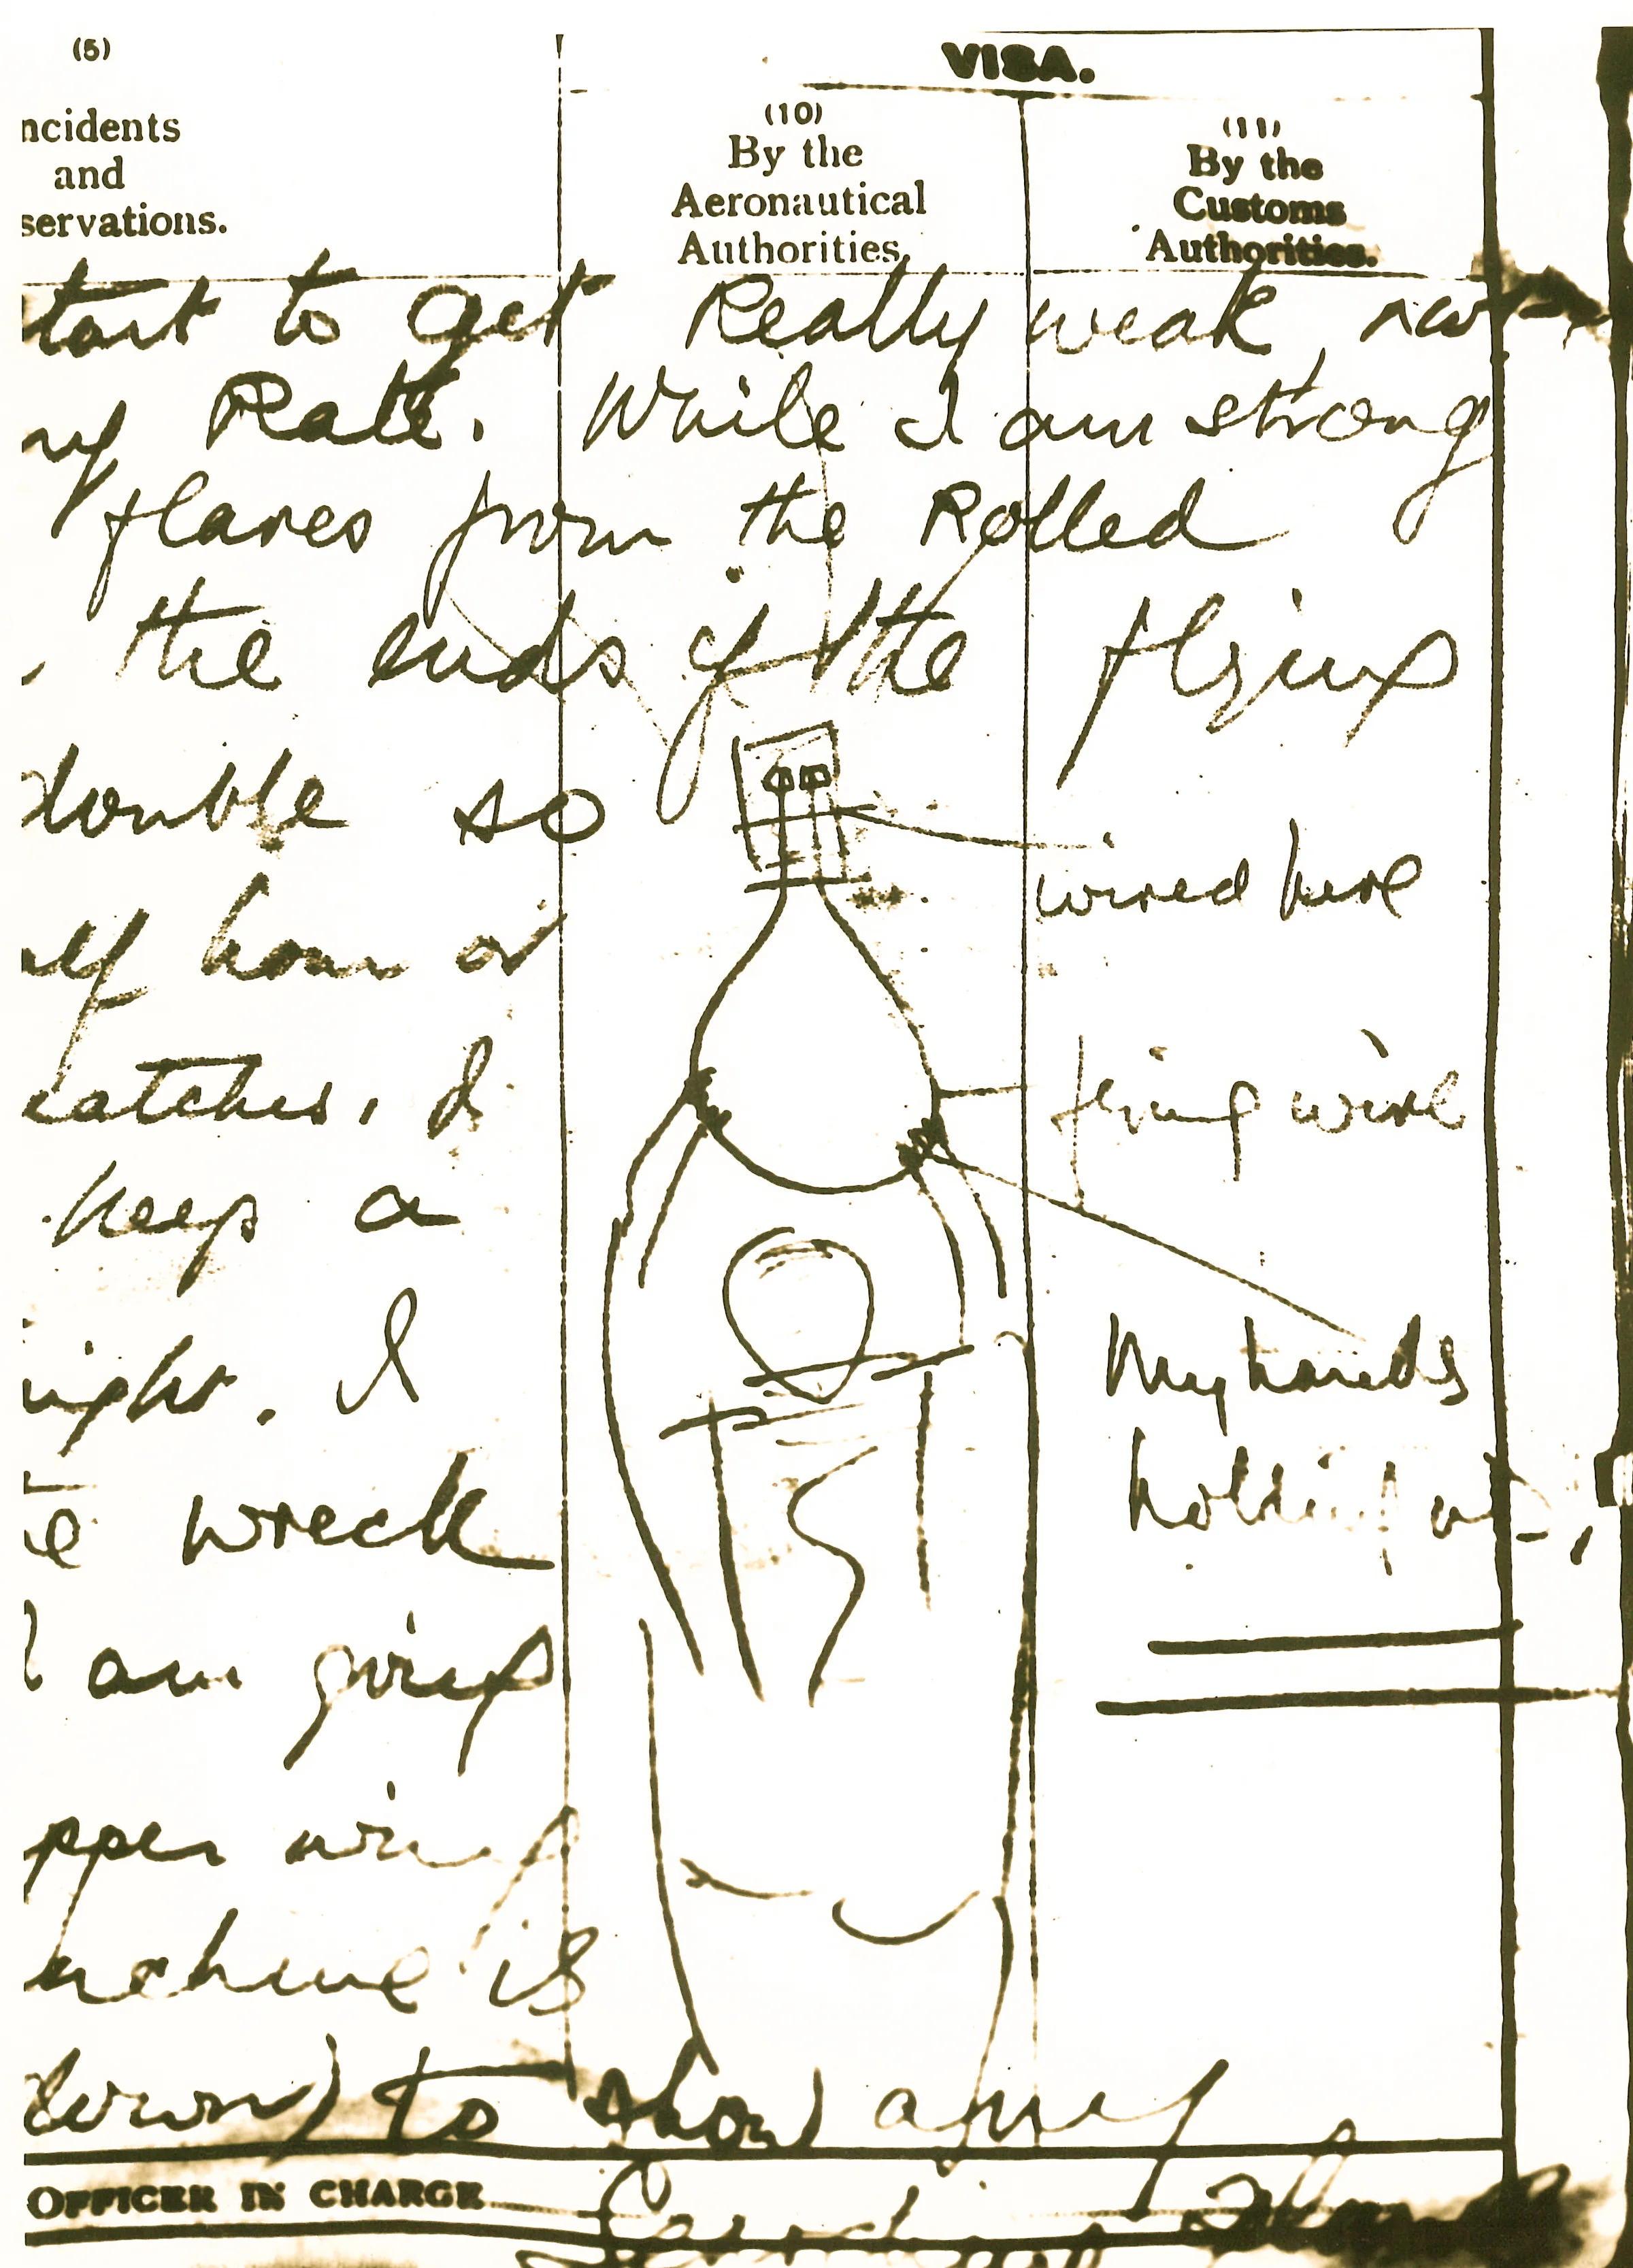 (5)
ncidents
and
servations.
VISA.
(10)
By the
Aeronautical
Authorities.
(11)
By the
Customs
Authorities.
tart to get Really weak, not
ny Rate. While I am strong
flares from the Rolled
the ends of the flying
double so
wired here
lf hour or
flying wire
atches. I
keep a
My hands
ight. I
holding up,
e wreck
I am giving
pper wing
achine is
down) to show any
OFFICER IN CHARGE